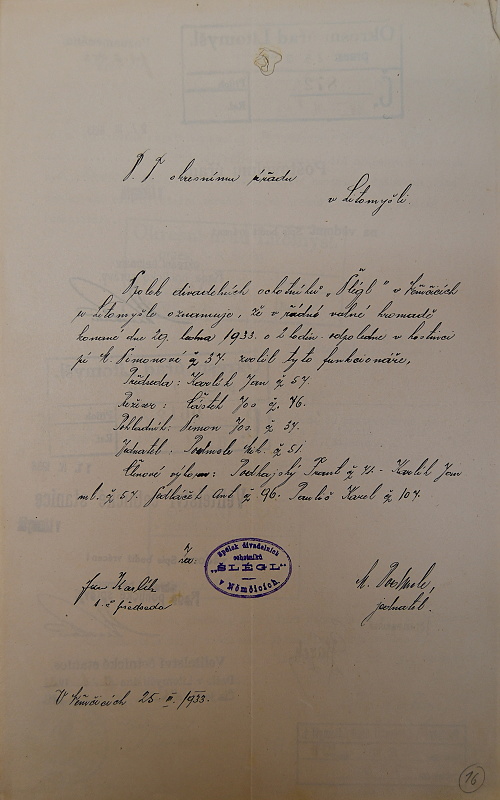 P. T. okresnímu úřadu
v Litomyšli.
Spolek divadelních ochotníků „Šlégl" v Němčicích
u Litomyšle oznamuje, že v řádné valné hromadě
konané dne 29. ledna 1933. o 2 hodin. odpoledne v hostinci
pí Simonové č 37. zvolil tyto funkcionáře,
Předseda: Karlík Jan č 57.
Režiser: Částek Jos č. 76.
Pokladník: Simon Jos. č 37.
Jednatel: č 51.
Členové výboru: Podhajský Frant č 71 - Karlík Jan
ml. č 57. Sedláček Ant č 96. Karel č 107.
Za
Spolek divadelních
ochotníků
„ŠLÉGL"
v Němčicích.
Jan Karlík
t. č předseda
M.
jednatel.
V Němčicích 25. II. 1933.
16